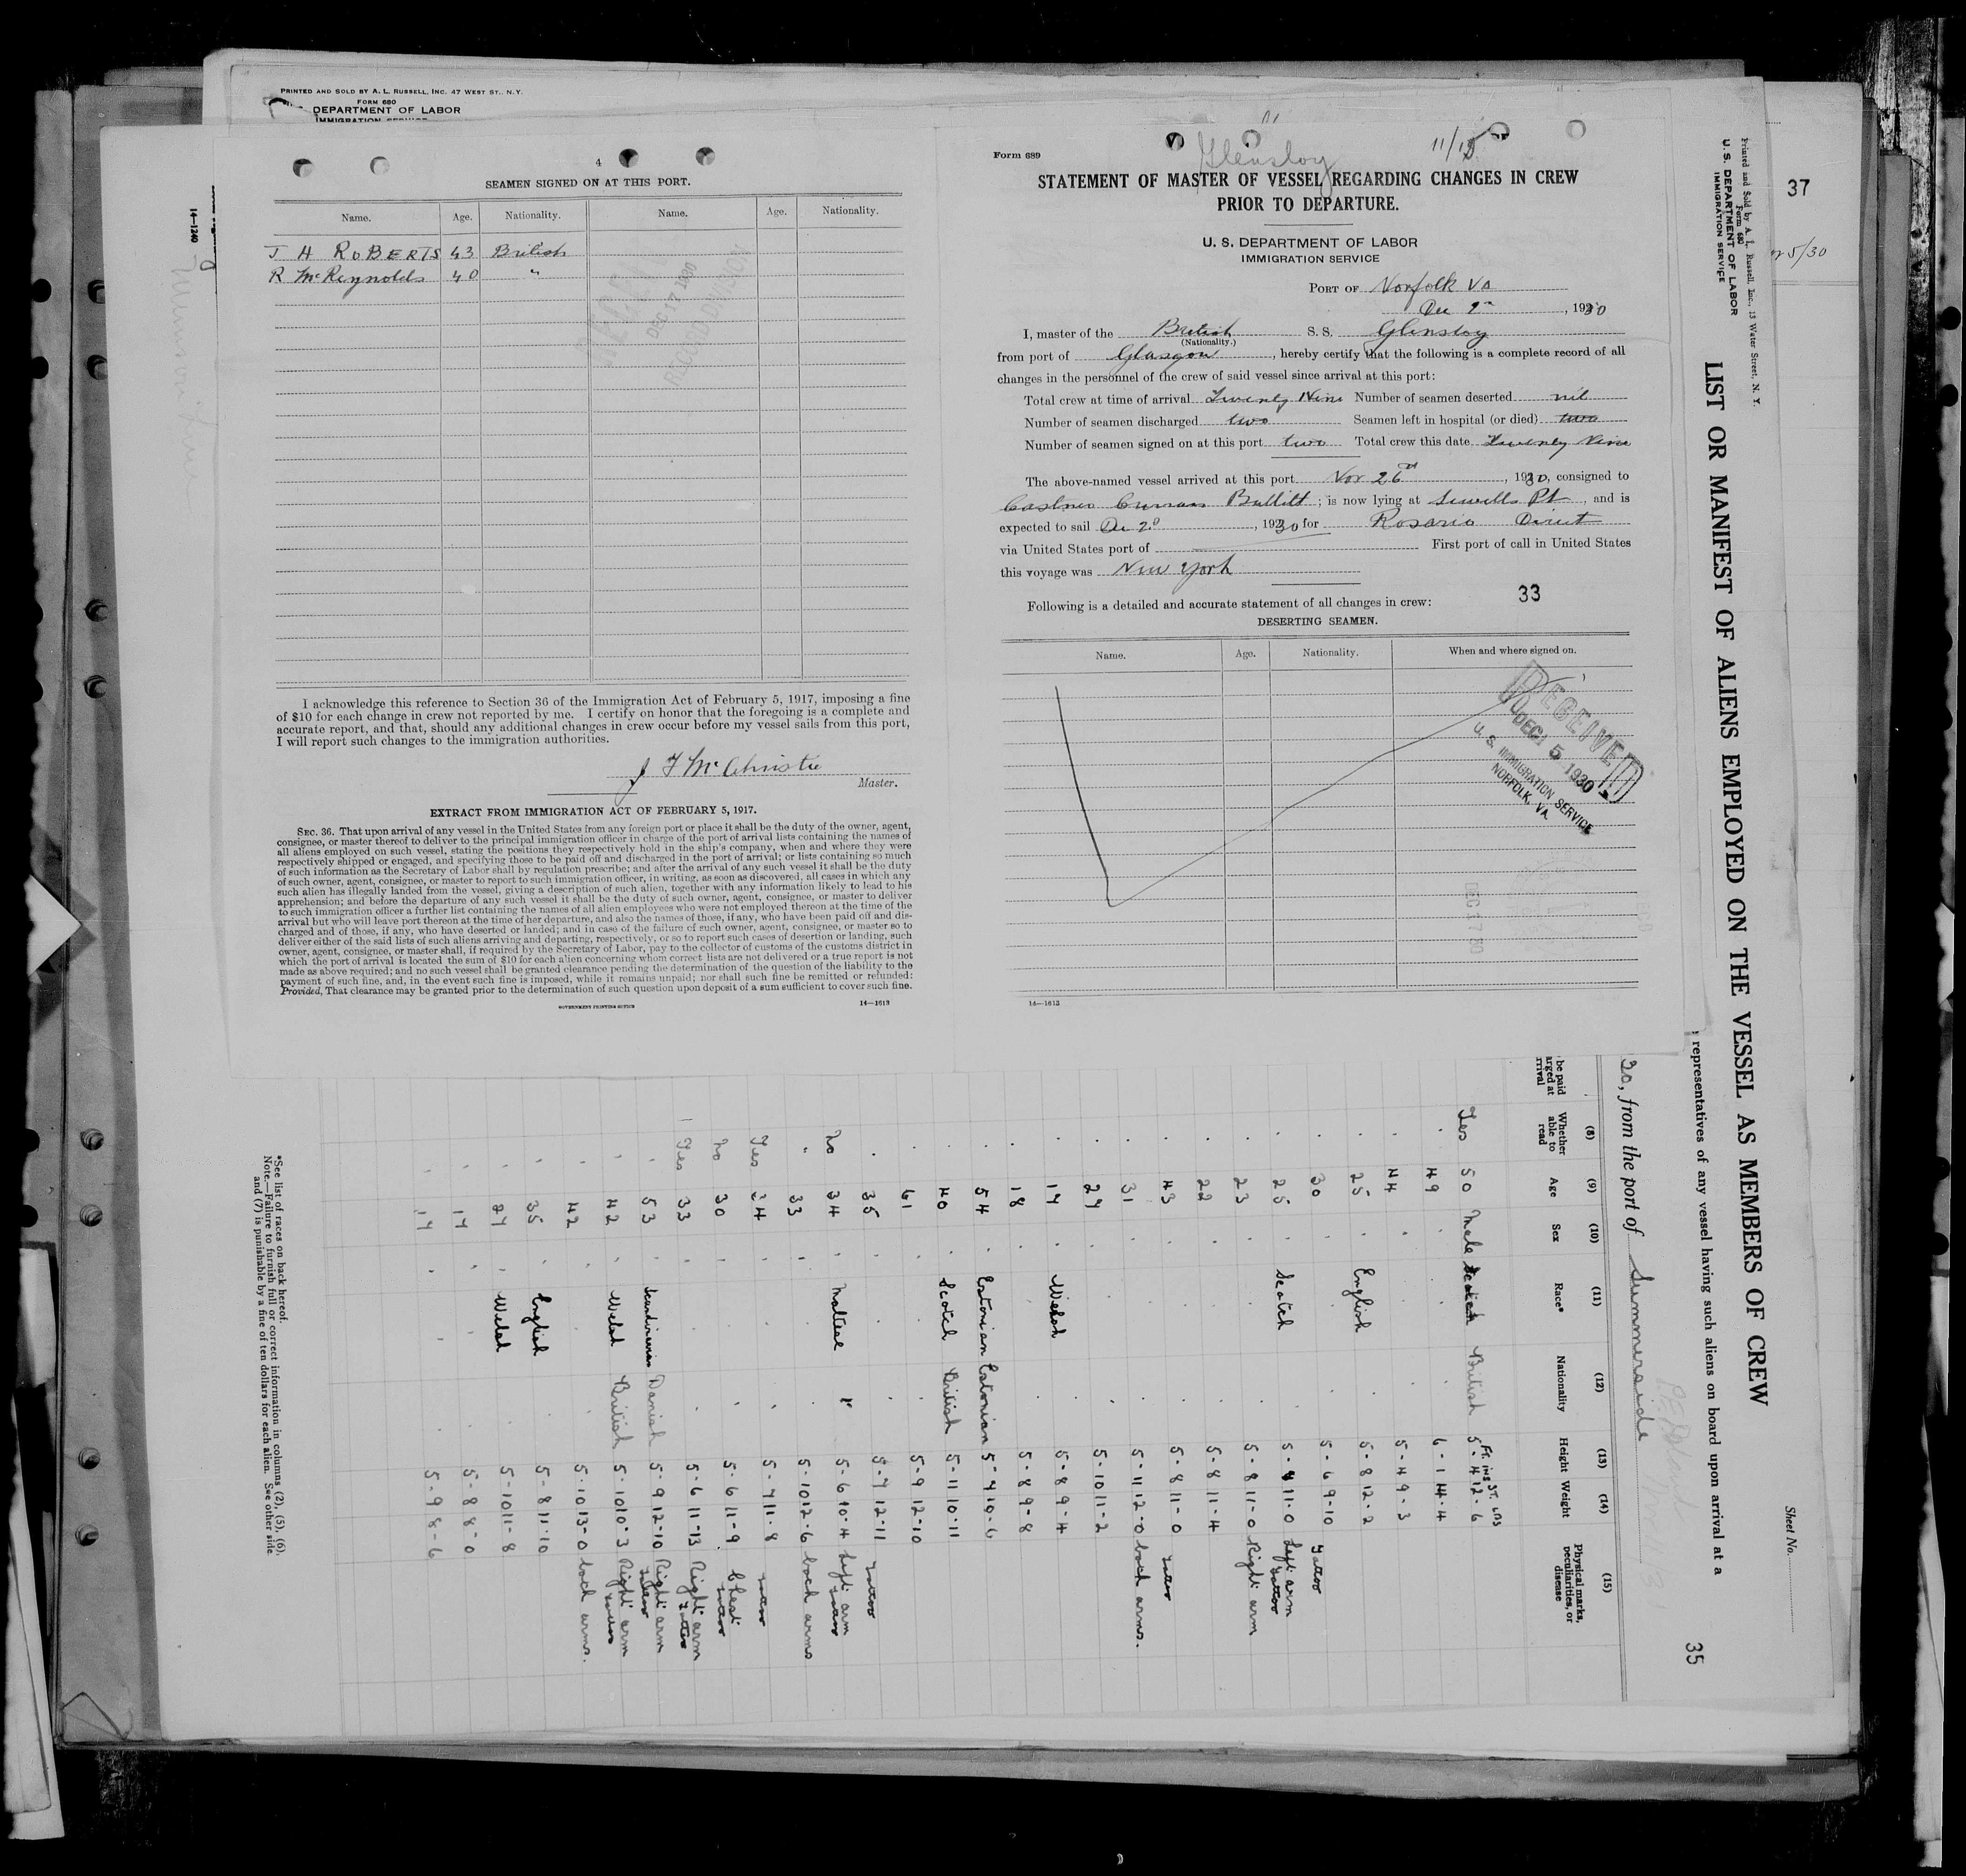 PRINTED AND SOLD BY A. L. RUSSELL, INC. 47 WEST ST., N.Y.
FORM 680
DEPARTMENT OF LABOR
IMMIGRATION SERVICE
14—1240
4
SEAMEN SIGNED ON AT THIS PORT.
Name. Age. Nationality. Name. Age. Nationality.
J H ROBERTS 43 British
R McReynolds 40 "
DEC 17 1930
RECORD DIVISION
I acknowledge this reference to Section 36 of the Immigration Act of February 5, 1917, imposing a fine
of $10 for each change in crew not reported by me. I certify on honor that the foregoing is a complete and
accurate report, and that, should any additional changes in crew occur before my vessel sails from this port,
I will report such changes to the immigration authorities.
J F McChristie
Master.
EXTRACT FROM IMMIGRATION ACT OF FEBRUARY 5, 1917.
SEC. 36. That upon arrival of any vessel in the United States from any foreign port or place it shall be the duty of the owner, agent,
consignee, or master thereof to deliver to the principal immigration officer in charge of the port of arrival lists containing the names of
all aliens employed on such vessel, stating the positions they respectively hold in the ship's company, when and where they were
respectively shipped or engaged, and specifying those to be paid off and discharged in the port of arrival; or lists containing so much
of such information as the Secretary of Labor shall by regulation prescribe; and after the arrival of any such vessel it shall be the duty
of such owner, agent, consignee, or master to report to such immigration officer, in writing, as soon as discovered, all cases in which any
such alien has illegally landed from the vessel, giving a description of such alien, together with any information likely to lead to his
apprehension; and before the departure of any such vessel it shall be the duty of such owner, agent, consignee, or master to deliver
to such immigration officer a further list containing the names of all alien employees who were not employed thereon at the time of the
arrival but who will leave port thereon at the time of her departure, and also the names of those, if any, who have been paid off and dis-
charged and of those, if any, who have deserted or landed; and in case of the failure of such owner, agent, consignee, or master so to
deliver either of the said lists of such aliens arriving and departing, respectively, or so to report such cases of desertion or landing, such
owner, agent, consignee, or master shall, if required by the Secretary of Labor, pay to the collector of customs of the customs district in
which the port of arrival is located the sum of $10 for each alien concerning whom correct lists are not delivered or a true report is not
made as above required; and no such vessel shall be granted clearance pending the determination of the question of the liability to the
payment of such fine, and, in the event such fine is imposed, while it remains unpaid; nor shall such fine be remitted or refunded:
Provided, That clearance may be granted prior to the determination of such question upon deposit of a sum sufficient to cover such fine.
GOVERNMENT PRINTING OFFICE 14—1613
Form 689
Glensloy
STATEMENT OF MASTER OF VESSEL REGARDING CHANGES IN CREW
PRIOR TO DEPARTURE.
U. S. DEPARTMENT OF LABOR
IMMIGRATION SERVICE
PORT OF Norfolk Va
, 1930
I, master of the British S. S. Glensloy
(Nationality.)
from port of Glasgow, hereby certify that the following is a complete record of all
changes in the personnel of the crew of said vessel since arrival at this port:
Total crew at time of arrival Twenty Nine Number of seamen deserted nil
Number of seamen discharged two Seamen left in hospital (or died) two
Number of seamen signed on at this port two Total crew this date Twenty Nine
The above-named vessel arrived at this port Nov 26th, 1930, consigned to
Castner Curran Bullitt; is now lying at Sewells Pt, and is
expected to sail De 2d, 1930 for Rosario Direct
via United States port of First port of call in United States
this voyage was New York
33
Following is a detailed and accurate statement of all changes in crew:
DESERTING SEAMEN.
Name. Age. Nationality. When and where signed on.
RECEIVED
DEC 5 1930
U. S. IMMIGRATION SERVICE
NORFOLK, VA.
DEC 17 30
14—1613
37
5/30
Printed and Sold by A. L. Russell, Inc., 13 Water Street, N. Y.
Form 680
U. S. DEPARTMENT OF LABOR
IMMIGRATION SERVICE
LIST OR MANIFEST OF ALIENS EMPLOYED ON THE VESSEL AS MEMBERS OF CREW
Sheet No.
representatives of any vessel having such aliens on board upon arrival at a
35
30, from the port of Summerside
(8) (9) (10) (11) (12) (13) (14) (15)
Whether able to read Age Sex Race* Nationality Height Weight Physical marks, peculiarities, or disease
Ft. ins St. Lbs
Yes 50 Male Scotch British 5-4 12-6
49 6-1 14-4
44 5-4 9-3
25 English 5-8 12-2
30 5-6 9-10 Tattoo
25 Scotch 5-4 11-0 Left arm Tattoo
23 5-8 11-0 Right arm
22 5-8 11-4
43 5-8 11-0 Tattoo
31 5-11 12-0 both arms.
29 5-10 11-2
19 Welsh 5-8 9-4
18 5-8 9-8
54 Estonian Estonian 5-4 10-6
40 Scotch British 5-11 10-11
61 5-9 12-10
35 5-7 12-11 Tattoo
No 34 Maltese " 5-6 10-4 Left arm Tattoo
33 5-10 12-6 both arms
Yes 24 5-7 11-8 Tattoo
No 30 5-6 11-9 Chest Tattoo
Yes 33 5-6 11-13 Right arm Tattoo
53 Scandinavian Danish 5-9 12-10 Right arm Tattoo
42 Welsh British 5-10 10-3 Right arm Tattoo
42 5-10 13-0 both arms.
35 English 5-8 11-10
27 Welsh 5-10 11-8
17 5-8 8-0
17 5-9 8-6
*See list of races on back hereof.
Note.—Failure to furnish full or correct information in columns (2), (5), (6),
and (7) is punishable by a fine of ten dollars for each alien. See other side